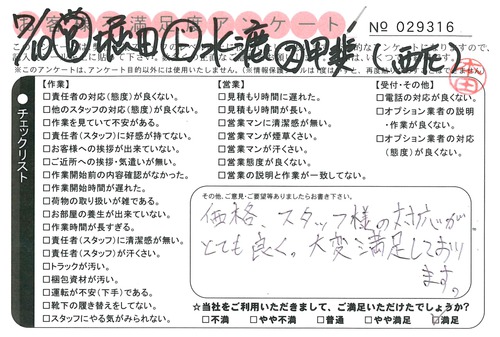 お客様満足度アンケート
No 029316
チェックリスト
【作業】
□責任者の対応(態度)が良くない。
□他のスタッフの対応(態度)が良くない。
□作業を見ていて不安がある。
□責任者(スタッフ)に好感が持てない。
□お客様への挨拶が出来ていない。
□ご近所への挨拶・気遣いが無い。
□作業開始前の内容確認がなかった。
□作業開始時間が遅れた。
□荷物の取り扱いが雑である。
□お部屋の養生が出来ていない。
□作業時間が長すぎる。
□責任者(スタッフ)に清潔感が無い。
□責任者(スタッフ)が汗くさい。
□トラックが汚い。
□梱包資材が汚い。
□運転が不安(下手)である。
□靴下の履き替えをしてない。
□スタッフにやる気がみられない。
【営業】
□見積もり時間に遅れた。
□見積もり時間が長い。
□営業マンに清潔感が無い。
□営業マンが煙草くさい。
□営業マンが汗くさい。
□営業態度が良くない。
□営業の説明と作業が一致してない。
【受付・その他】
□電話の対応が良くない。
□オプション業者の説明
・作業が良くない。
□オプション業者の対応
(態度)が良くない。
その他、ご意見・ご要望等ありましたらお書き下さい。
価格、スタッフ様の対応が
とても良く。大変満足しており
ます。
☆当社をご利用いただきまして、ご満足いただけたでしょうか?
□不満 □やや不満 □普通 □やや満足 □満足